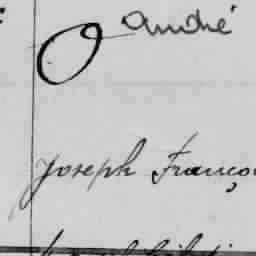 O André
Joseph Franço